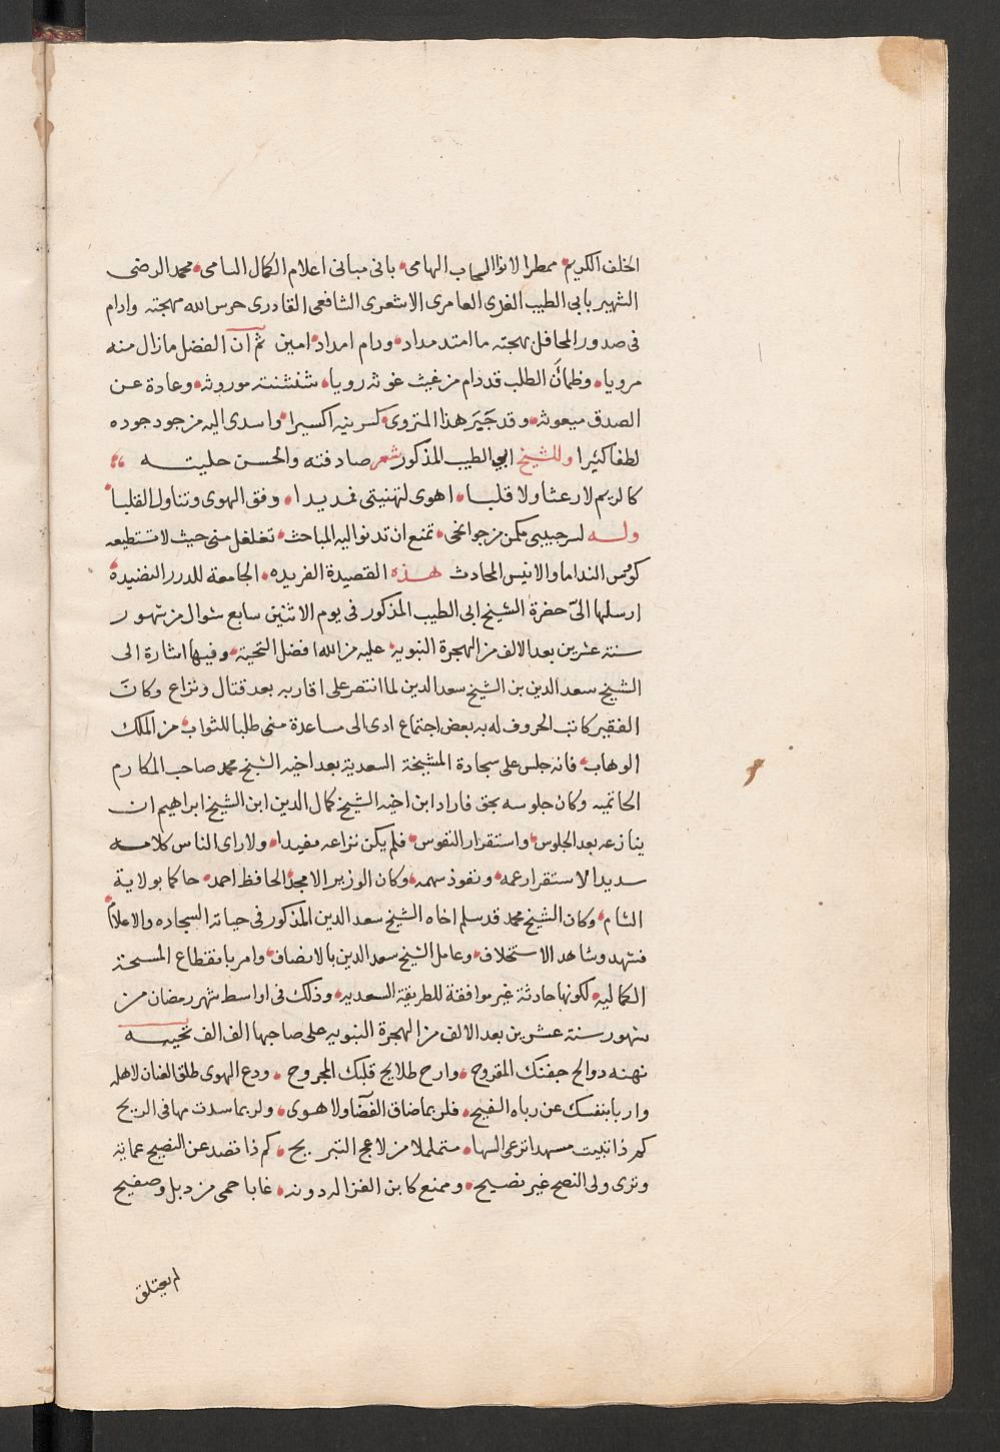 الخلف الكريم ممطر الانوا السحاب الهامى باني مباني اعلام الكمال السامى محمد الرضى
الشهير بابي الطيب الغزى العامرى الاشعرى الشافعى القادرى حرس الله مهجته وادام
فى صدور المحافل بهجته ما امتد مداد ودام امداد امين ثم ان الفضل ما زال منه
مرويا وظمأن الطلب قد دام من غيث غوثه رويا شنشنته موروثه وعادة عن
الصدق مبعوثه وقد جبر هذا المتروى كسرينه اكسيرا واسدى اليه من جود جوده
لطفا كثيرا وللشيخ ابي الطيب المذكور شعر صادفته والحسن حليته
كالريم لا رعثا ولا قلبا اهوى لتهنيتى فمد يدا وفق الهوى وتناول القلبا
وله لسر حبيبى مكمن من جوانحى تمنع ان تدنو اليه المباحث تغلغل منى حيث لا تستطيعه
كؤس النداما والانيس المحادث هذه القصيدة الفريده الجامعة للدرر النضيدة
ارسلها الى حضرة الشيخ ابى الطيب المذكور فى يوم الاثنين سابع شوال من شهور
سنة عشرين بعد الالف من الهجرة النبويه عليه من الله افضل التحيته وفيها اشارة الى
الشيخ سعد الدين بن الشيخ سعد الدين لما انتصر على اقاربه بعد قتال ونزاع وكان
الفقير كاتب الحروف له به بعض اجتماع ادى الى مساعدة منى طلبا للثواب من الملك
الوهاب فانه جلس على سجادة المشيخة السعدية بعد اخيه الشيخ محمد صاحب المكارم
الحاتميه وكان جلوسه بحق فاراد ابن اخيه الشيخ كمال الدين ابن الشيخ ابراهيم ان
ينازعه بعد الجلوس واستقرار النفوس فلم يكن نزاعه مفيدا ولا راى الناس كلامه
سديدا لاستقرار عمه ونفوذ سهمه وكان الوزير الامجد الحافظ احمد حاكما بولاية
الشام وكان الشيخ محمد قد سلم اخاه الشيخ سعد الدين المذكور فى حياته السجاده والاعلام
فشهد وشاهد الاستخلاف وعامل الشيخ سعد الدين بالانصاف وامر بانقطاع المسيحة
الكماليه لكونها حادثة غير موافقة للطريقة السعديه وذلك فى اواسط شهر رمضان من
شهور سنة عشرين بعد الالف من الهجرة النبويه على صاحبها الف الف تحيه
نهنه دوالح جفنك المقروح وارح طلايح قلبك المجروح ودع الهوى طلق العنان لاهله
واربا بنفسك عن رباه الفيح فلربما ضاق الفضا ولا هوى ولربما سدت مهافى الريح
كم ذا تبيت مسهدا ترعى السها متململا من لاعج التبريح كم ذا تصد عن النصيح عماية
وترى ولى النصح غير نصيح وممنع كابن الغزاله دونه غابا حمى من دبل وصفيح
لم يعتلق